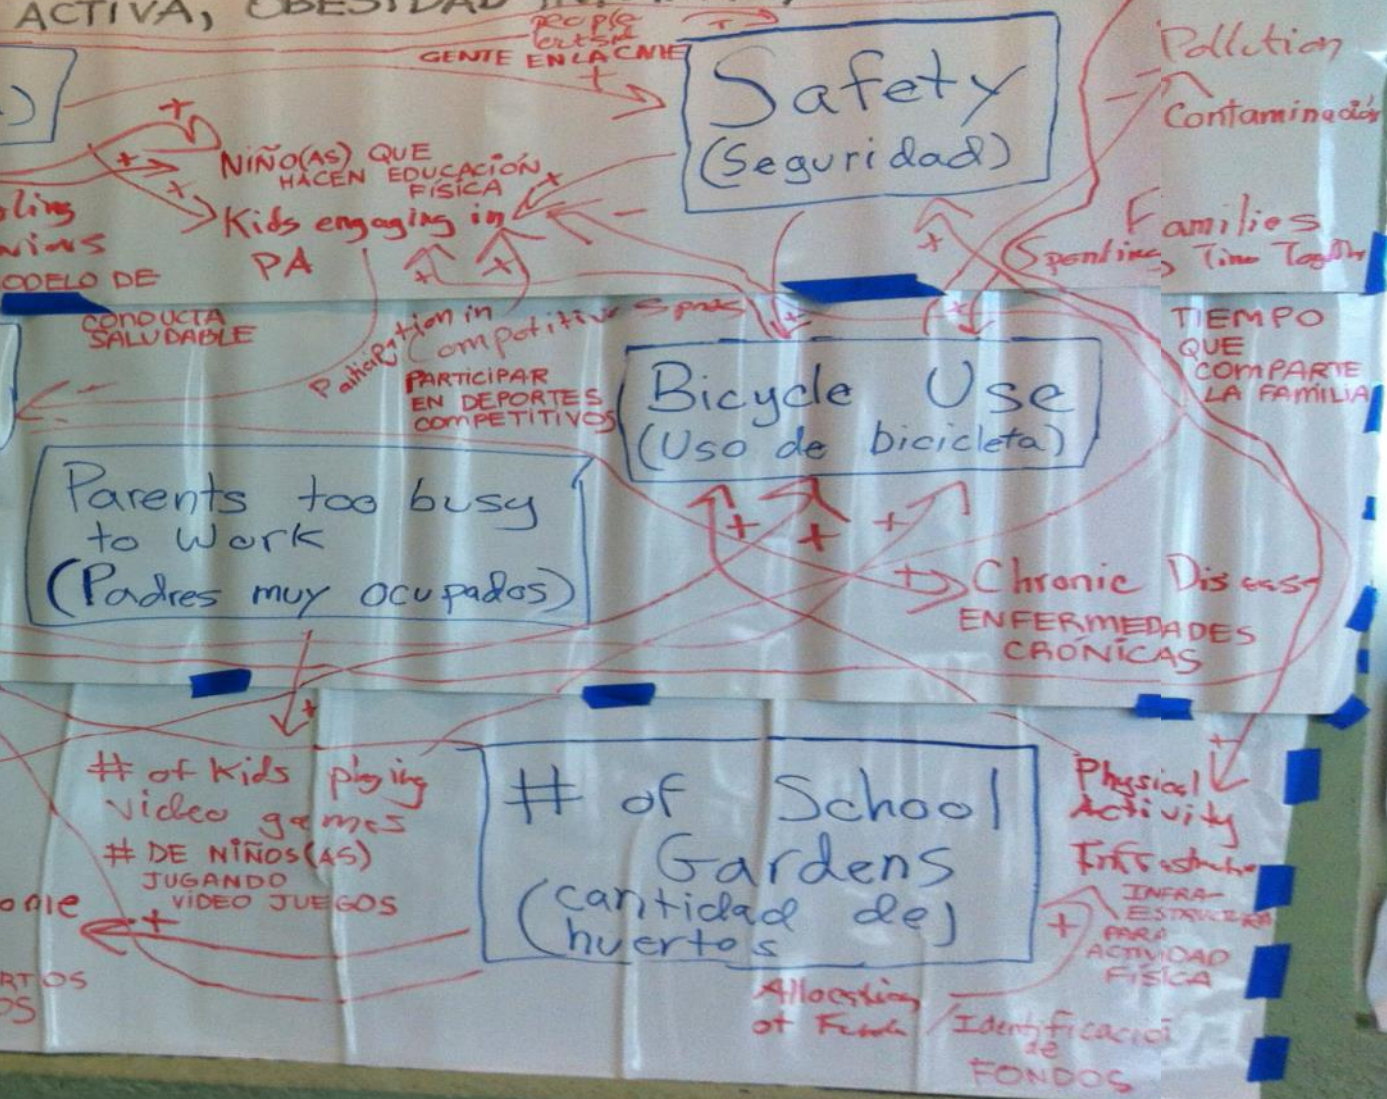 ACTIVA, OBESIDAD
people
GENTE EN LA CALLE
+
+
Safety
(Seguridad)
Pollution
Contaminación
+
+
+
NIÑO(AS) QUE
HACEN EDUCACIÓN
FÍSICA
Kids engaging in
PA
+
+
+
+
Families
Spending Time Together
TIEMPO
QUE
COMPARTE
LA FAMILIA
MODELO DE
CONDUCTA
SALUDABLE
Participation in
Competitive Sports
PARTICIPAR
EN DEPORTES
COMPETITIVOS
+
+
Bicycle Use
(Uso de bicicleta)
Parents too busy
to Work
(Padres muy ocupados)
+
+
+
+
Chronic Diseas
ENFERMEDADES
CRÓNICAS
+
# of Kids playing
video games
# DE NIÑOS(AS)
JUGANDO
VIDEO JUEGOS
+
# of School
Gardens
(cantidad de)
huertos
+
Physical
Activity
Infrastructure
INFRA-
ESTRUCTURA
PARA
ACTIVIDAD
FÍSICA
+
Allocation
of Funds
/Identificació
de
FONDOS